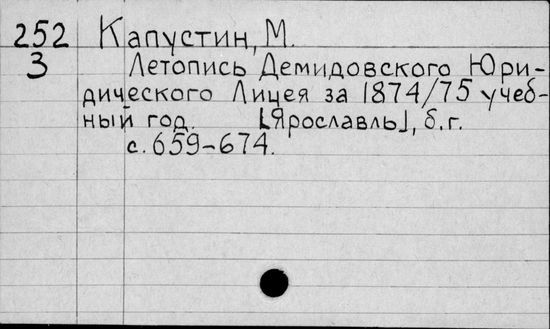 252 Капустин, М.
3 Летопись Демидовского Юри-
дического Лицея за 1874/75 учеб-
ный год. [Ярославль], б.г.
с. 659-674.